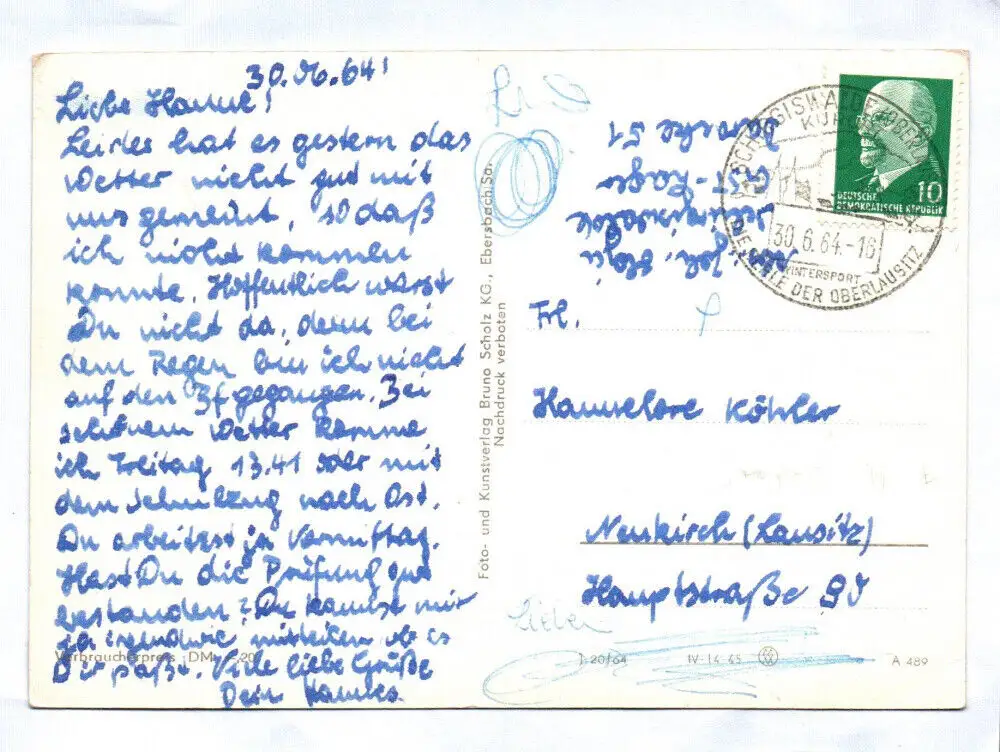 30.06.64!
Liebe Hanne!
Leider hat es gestern das
Wetter nicht gut mit
uns gemeint, so daß
ich nicht kommen
konnte. Hoffentlich warst
Du nicht da, denn bei
dem Regen bin ich nicht
auf den Bf gegangen. Bei
schönem Wetter komme
ich Freitag 13.41 oder mit
dem Schulzug nach Ost.
Du arbeitest ja Vormittag.
Hast Du die Prüfung gut
bestanden? Du kannst mir
ja irgendwie mitteilen ob es
Dir paßt. Viele liebe Grüße
Dein Hannes.
Verbraucherpreis DM -,20
Foto- und Kunstverlag Bruno Scholz KG., Ebersbach Sa.
Nachdruck verboten
Abs.: Joh.
GST-Lager
Baracke 51
SCHIRGISWALDE (OBERL
KUR
30.6.64-16
WINTERSPORT
DIE PERLE DER OBERLAUSITZ
DEUTSCHE
DEMOKRATISCHE REPUBLIK
10
Frl.
Hannelore Köhler
Neukirch (Lausitz)
Hauptstraße
Lieber
I 20/64 IV-14-45 A 489